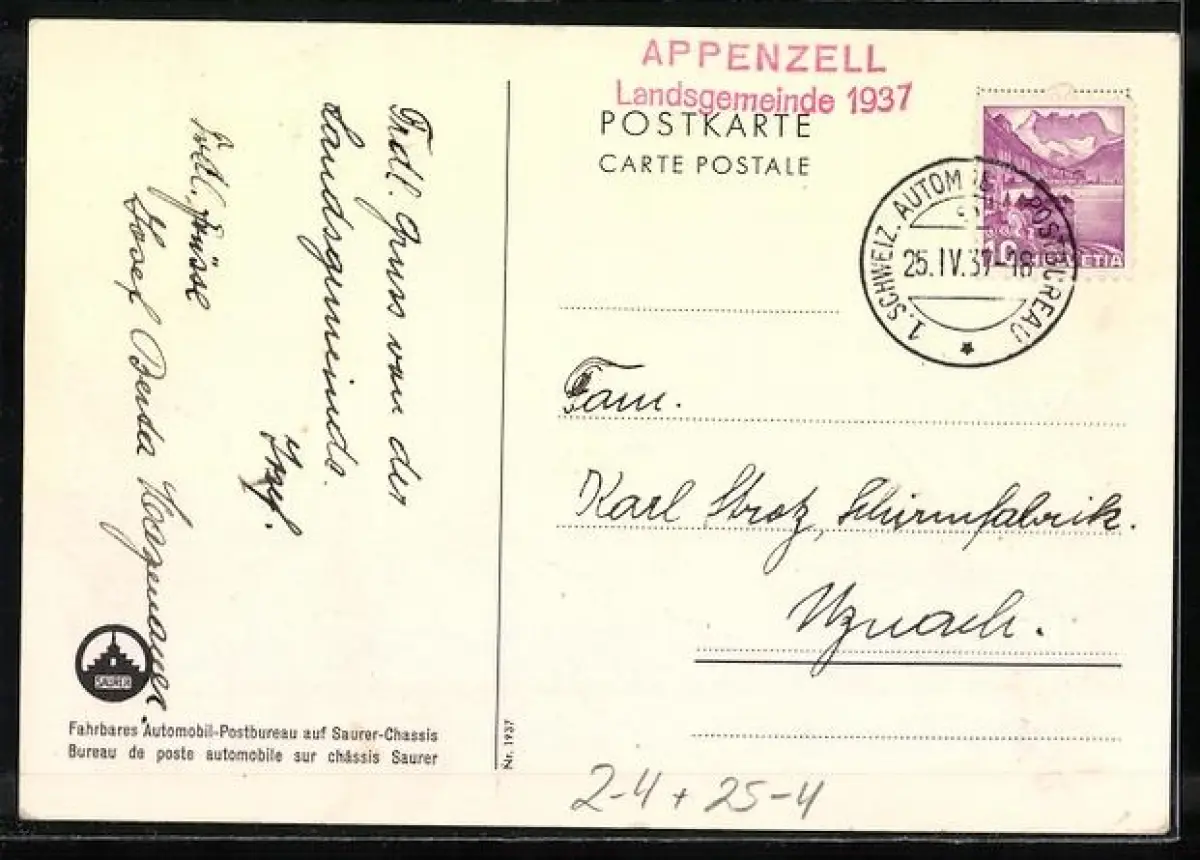 APPENZELL
Landsgemeinde 1937
POSTKARTE
CARTE POSTALE
10 HELVETIA
1. SCHWEIZ. AUTOMOB. POSTBUREAU
25.IV.37-18
Frdl. Gruss von der
Landsgemeinde.
Josef
Fam.
Karl Strotz, Schirmfabrik.
Uznach.
SAURER
Fahrbares Automobil-Postbureau auf Saurer-Chassis
Bureau de poste automobile sur châssis Saurer
Nr. 1937
2-4 + 25-4